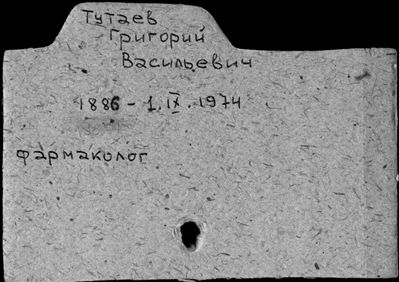 Тутаев
Григорий
Васильевич
1886 - 1.IX.1974
фармаколог